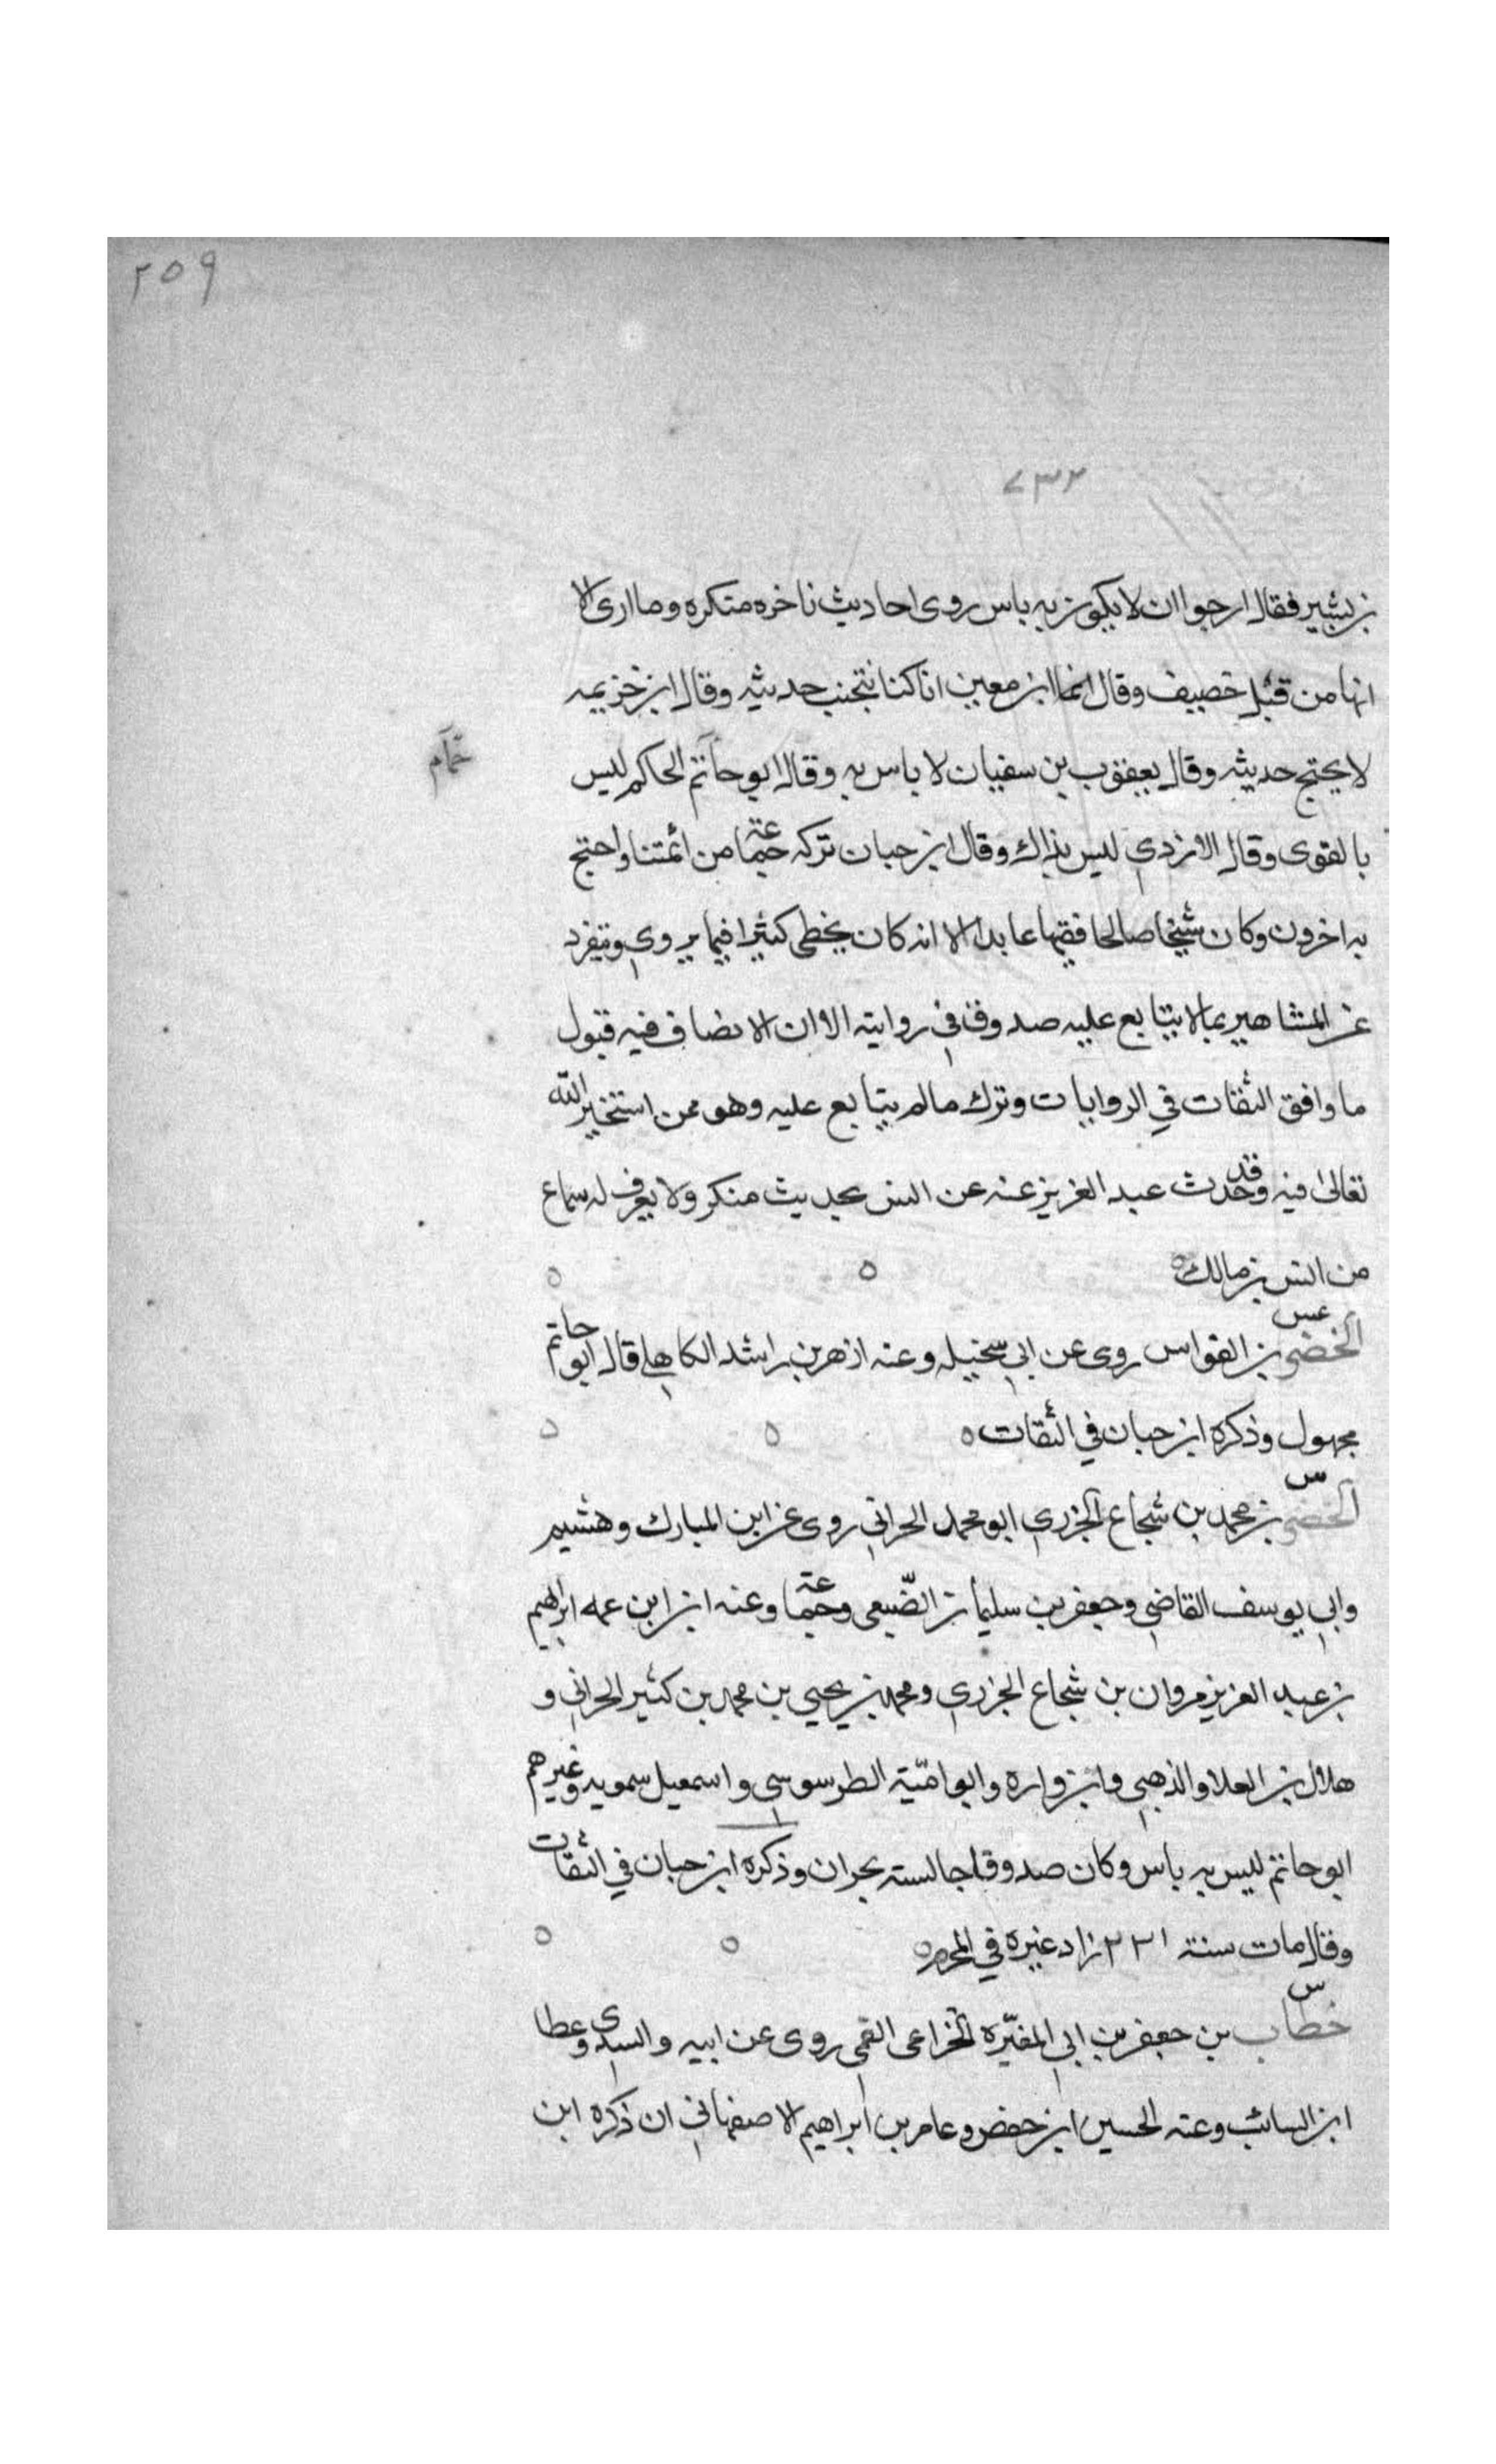 ٢٥٩
٧٣٢
بن بشير فقال ارجوا ان لا يكون به باس روى احاديث ناخره متكره وما ارى الا
انها من قبل خصيف وقال انما ابن معين انا كنا نتجنب حديثه وقال ابن خزيمه
لا يحتج حديثه وقال يعقوب بن سفيان لا باس به وقال ابو حاتم الحاكم ليس
بالقوى وقال الازدي ليس بذاك وقال ابن حبان تركه جماعة من ائمتنا واحتج
به اخرون وكان شيخا صالحا فقيها عابدا الا انه كان يخطى كثيرا فيما يروي ويتفرد
عن المشاهير بما لا يتابع عليه صدوق في روايته الا ان الانصاف فيه قبول
ما وافق الثقات في الروايات وترك ما لم يتابع عليه وهو ممن استخير الله
تعالى فيه وقد حدث عبد العزيز عنه عن انس بحديث منكر ولا يعرف له سماع
من انس بن مالك
عس
الخضر بن القواس روى عن ابي سخيله وعنه ازهر بن راشد الكاهلي قال ابو حاتم
مجهول وذكره ابن حبان في الثقات
س
الخضر بن محمد بن شجاع الجزري ابو محمد الحراني روى عن ابن المبارك وهشيم
وابي يوسف القاضي وجعفر بن سليمان الضبعي وجماعة وعنه ابن ابن عمه ابراهيم
بن عبد العزيز مروان بن شجاع الجزري ومحمد بن يحيي بن محمد بن كثير الحراني و
هلال بن العلا والذهبي وابن واره وابو اميّة الطرسوسي واسمعيل سمويه وغيرهم
ابو حاتم ليس به باس وكان صدوقا جالسته بحران وذكره ابن حبان في الثقات
وقال مات سنة ٢٢١ زاد غيره في المحرم
س
خطاب بن جعفر بن ابي المغيّره الخزاعى القمي روى عن ابيه والسدي وعطا
ابن السائب وعنه الحسين ابن حفص وعامر بن ابراهيم الاصفهاني ان ذكره ابن